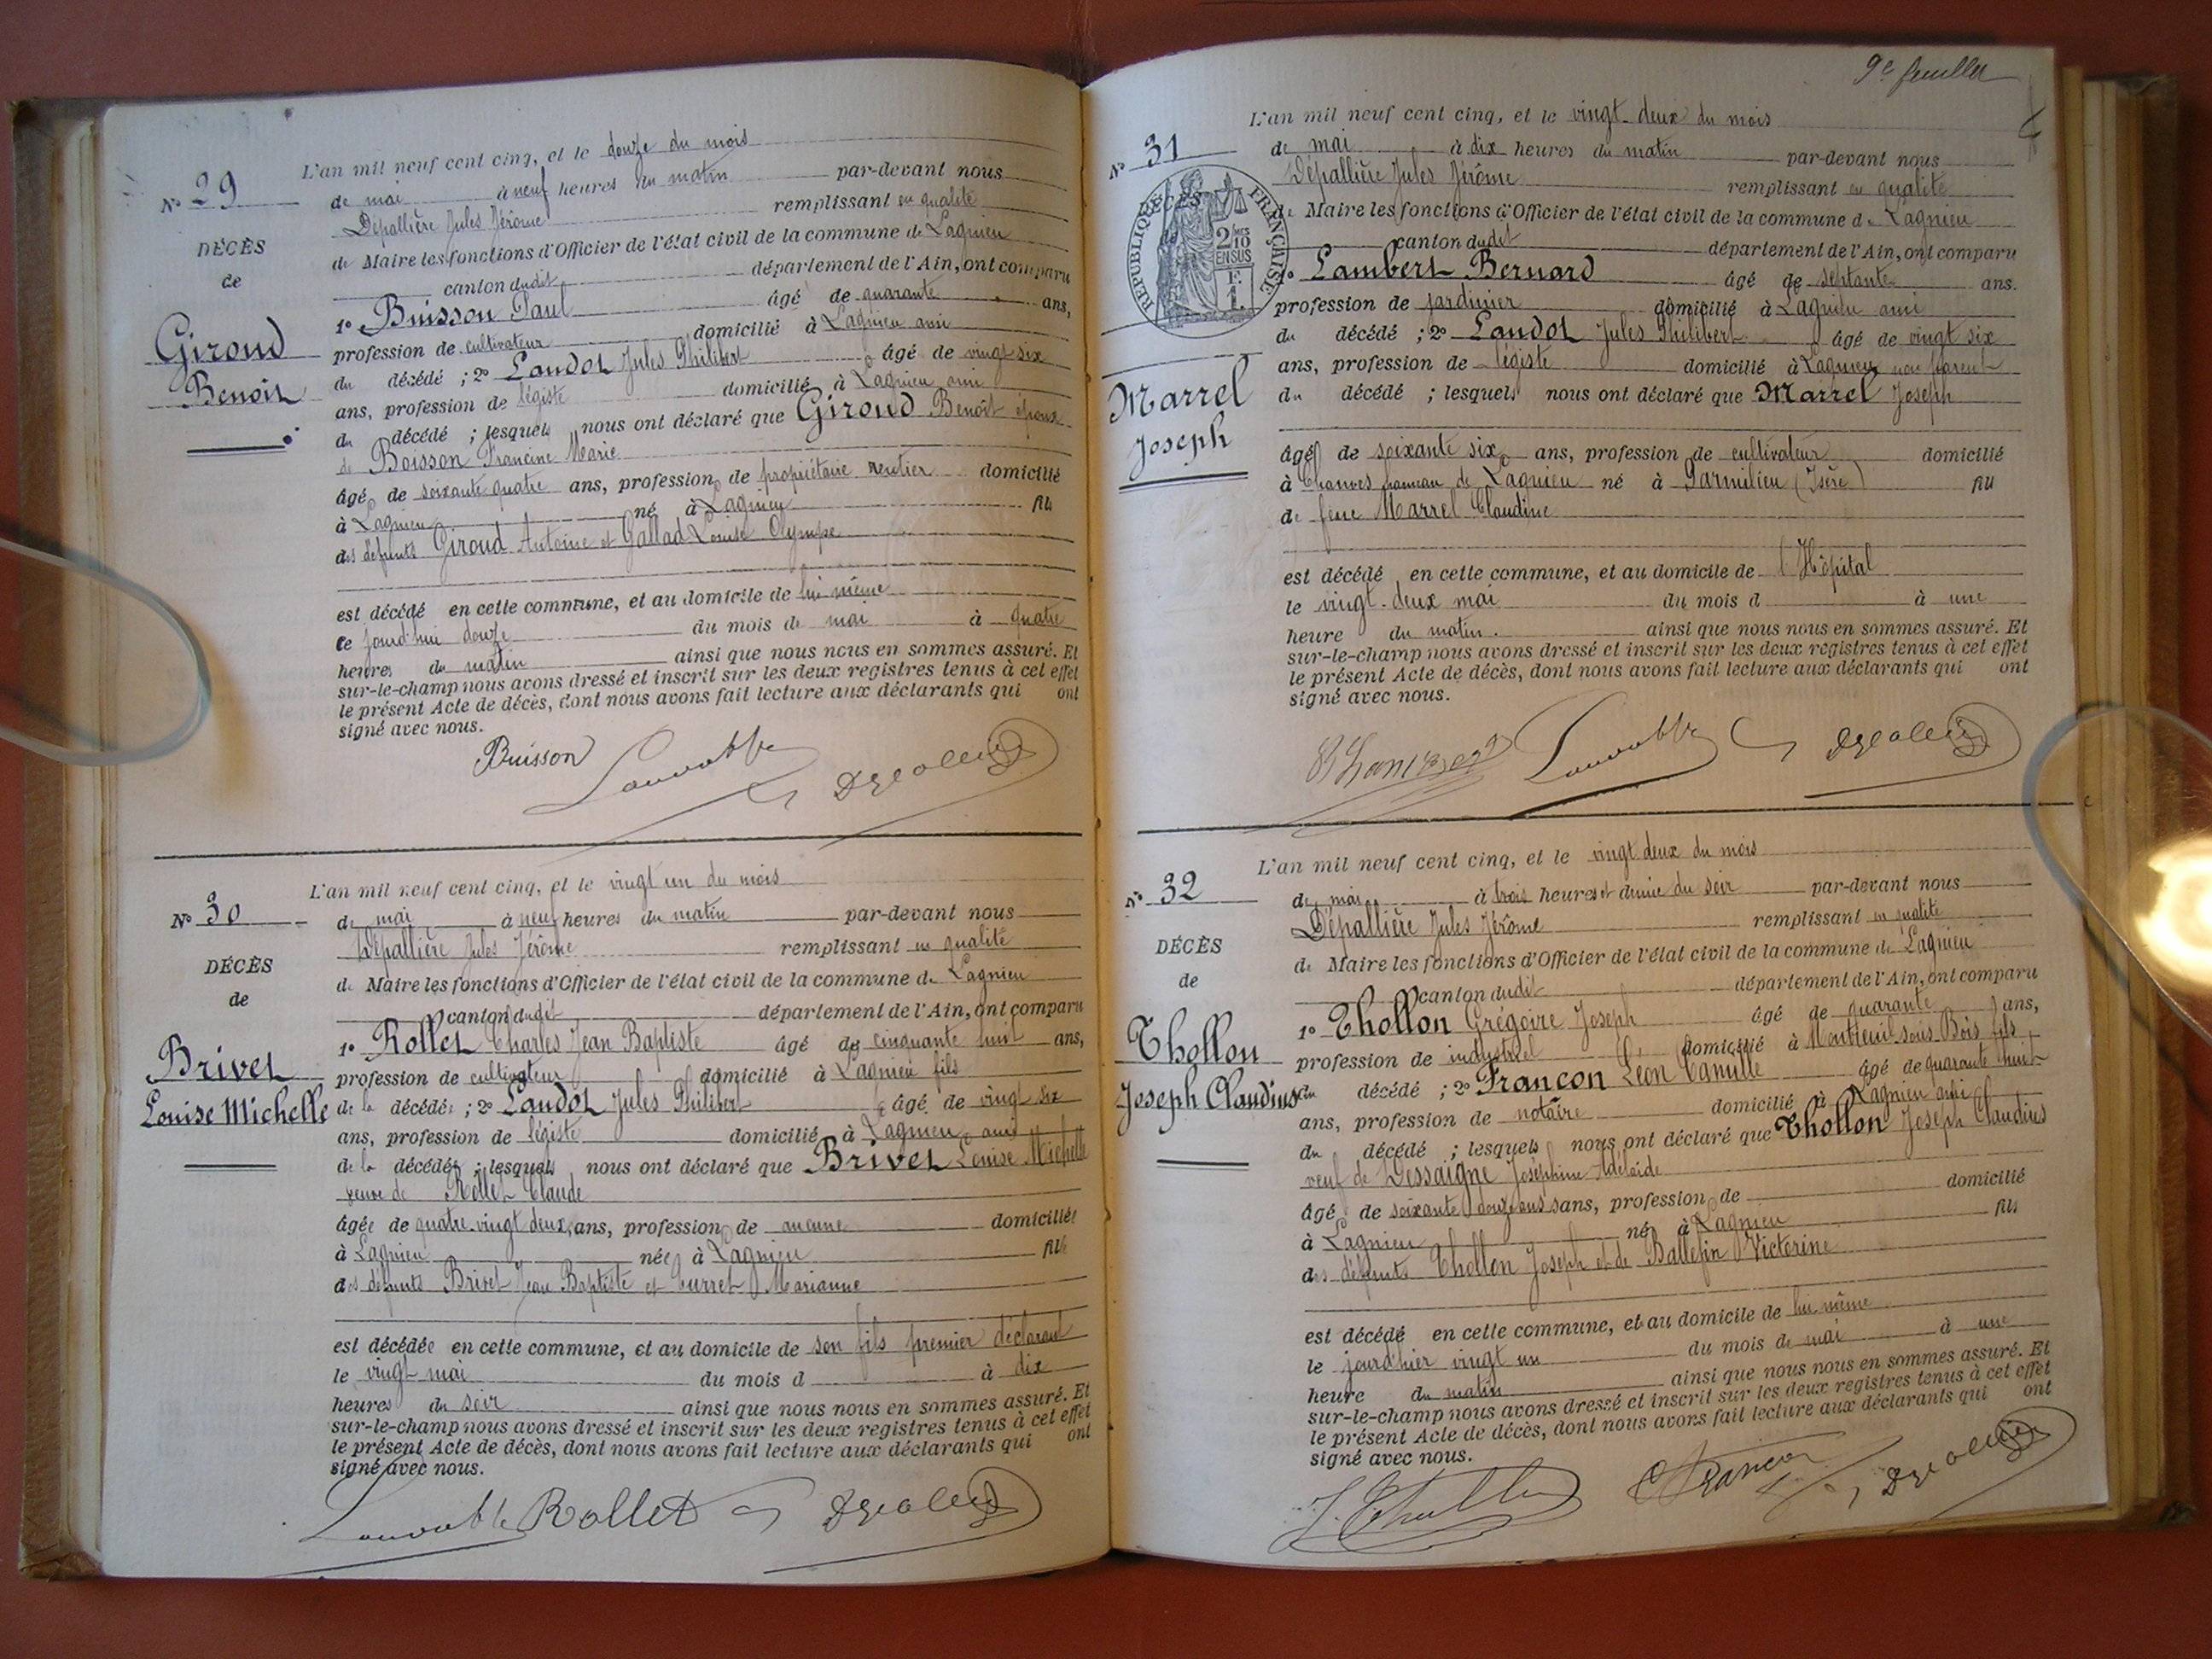 Nº 29
DÉCÈS
de
Giroud
Benoît
L'an mil neuf cent cinq, et le douze du mois
de mai à neuf heures du matin par-devant nous
Dépallière Jules Jérôme remplissant en qualité
de Maire les fonctions d'Officier de l'état civil de la commune de Lagnieu
canton dudit département de l'Ain, ont comparu
1º Buisson Paul âgé de quarante ans,
profession de cultivateur domicilié à Lagnieu ami
du décédé ; 2º Landot Jules Philibert âgé de vingt six
ans, profession de légiste domicilié à Lagnieu ami
du décédé ; lesquels nous ont déclaré que Giroud Benoît époux
de Boisson Francine Marie
âgé de soixante quatre ans, profession de propriétaire rentier domicilié
à Lagnieu né à Lagnieu fils
des défunts Giroud Antoine et Gallad Louise Olympe
est décédé en cette commune, et au domicile de lui même
ce jourd'hui douze du mois de mai à quatre
heures du matin ainsi que nous nous en sommes assuré. Et
sur-le-champ nous avons dressé et inscrit sur les deux registres tenus à cet effet
le présent Acte de décès, dont nous avons fait lecture aux déclarants qui ont
signé avec nous.
Buisson
Nº 30
DÉCÈS
de
Brivet
Louise Michelle
L'an mil neuf cent cinq, et le vingt un du mois
de mai à neuf heures du matin par-devant nous
Dépallière Jules Jérôme remplissant en qualité
de Maire les fonctions d'Officier de l'état civil de la commune de Lagnieu
canton dudit département de l'Ain, ont comparu
1º Rollet Charles Jean Baptiste âgé de cinquante huit ans,
profession de cultivateur domicilié à Lagnieu fils
de la décédée ; 2º Landot Jules Philibert âgé de vingt six
ans, profession de légiste domicilié à Lagnieu ami
de la décédée ; lesquels nous ont déclaré que Brivet Louise Michelle
veuve de Rollet Claude
âgée de quatre-vingt deux ans, profession de aucune domiciliée
à Lagnieu née à Lagnieu fille
des défunts Brivet Jean Baptiste et Curret Marianne
est décédée en cette commune, et au domicile de son fils premier déclarant
le vingt mai du mois d à dix
heures du soir ainsi que nous nous en sommes assuré. Et
sur-le-champ nous avons dressé et inscrit sur les deux registres tenus à cet effet
le présent Acte de décès, dont nous avons fait lecture aux déclarants qui ont
signé avec nous.
Rollet
9e feuillet
Nº 31
RÉPUBLIQUE FRANÇAISE
DÉCÈS
2/10
EN SUS
F.
1
Marrel
Joseph
L'an mil neuf cent cinq, et le vingt-deux du mois
de mai à dix heures du matin par-devant nous
Dépallière Jules Jérôme remplissant en qualité
de Maire les fonctions d'Officier de l'état civil de la commune de Lagnieu
canton dudit département de l'Ain, ont comparu
1º Lambert Bernard âgé de septante ans.
profession de jardinier domicilié à Lagnieu ami
du décédé ; 2º Landot Jules Philibert âgé de vingt six
ans, profession de légiste domicilié à Lagnieu non parent
du décédé ; lesquels nous ont déclaré que Marrel Joseph
âgé de soixante six ans, profession de cultivateur domicilié
à Chanves hameau de Lagnieu né à Parmilieu (Isère) fils
de feue Marrel Claudine
est décédé en cette commune, et au domicile de l'Hôpital
le vingt-deux mai du mois d à une
heure du matin. ainsi que nous nous en sommes assuré. Et
sur-le-champ nous avons dressé et inscrit sur les deux registres tenus à cet effet
le présent Acte de décès, dont nous avons fait lecture aux déclarants qui ont
signé avec nous.
Nº 32
DÉCÈS
de
Thollon
Joseph Claudius
L'an mil neuf cent cinq, et le vingt deux du mois
de mai à trois heures et demie du soir par-devant nous
Dépallière Jules Jérôme remplissant en qualité
de Maire les fonctions d'Officier de l'état civil de la commune de Lagnieu
canton dudit département de l'Ain, ont comparu
1º Thollon Grégoire Joseph âgé de quarante ans,
profession de industriel domicilié à Montreuil sous Bois fils
du décédé ; 2º Francon Léon Camille âgé de quarante huit
ans, profession de notaire domicilié à Lagnieu ami
du décédé ; lesquels nous ont déclaré que Thollon Joseph Claudius
veuf de Dessaigne Joséphine Adélaïde
âgé de soixante douze ans sans, profession de domicilié
à Lagnieu né à Lagnieu fils
des défunts Thollon Joseph et de Ballefin Victorine
est décédé en cette commune, et au domicile de lui même
le jourd'hier vingt un du mois de mai à une
heure du matin ainsi que nous nous en sommes assuré. Et
sur-le-champ nous avons dressé et inscrit sur les deux registres tenus à cet effet
le présent Acte de décès, dont nous avons fait lecture aux déclarants qui ont
signé avec nous.
Francon